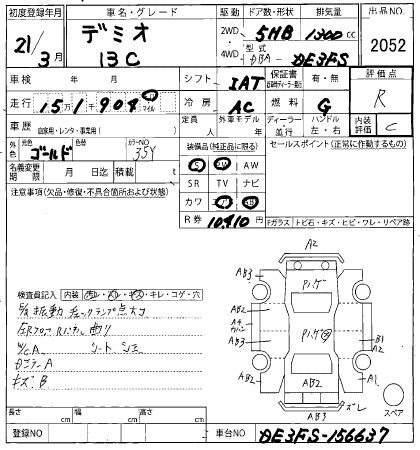 初度登録年月 車名・グレード 駆動 ドア数・形状 排気量 出品NO.
21/3月 デミオ 13C 2WD 4WD 5HB 1300cc 2052
型式 DBA- DE3FS
車検 年 月 シフト IAT 保証書 有・無 評価点 R
走行 15万1904 マイル 冷房 AC 燃料 G
車歴 自家用・レンタ・事業用( ) 定員 人 外車モデル 年 ディーラー・並行 ハンドル 左・右 内装評価 C
外色 元色 ゴールド 色替 カラーNO 35Y 装備品(純正品に限る) セールスポイント(正常に作動するもの)
名義変更期限 月 日迄 積載 t
注意事項(欠品・修復・不具合箇所および状態)
S AW
SR TV ナビ
カワ
R券 10,410円
Fガラス トビ石・キズ・ヒビ・ワレ・リペア跡
検査員記入 内装 キレ・コゲ・穴
振動 チェックランプ点灯
曲り
W/C A シートシミ
A
キズ B
A2
AB3
Pハゲ
AB2
AB3
AB3
Pハゲ
B1
A2
AB2
AB2
A1
AB3
ズレ
スペア
長さ cm 幅 cm 高さ cm
登録NO 車台NO DE3FS-156637